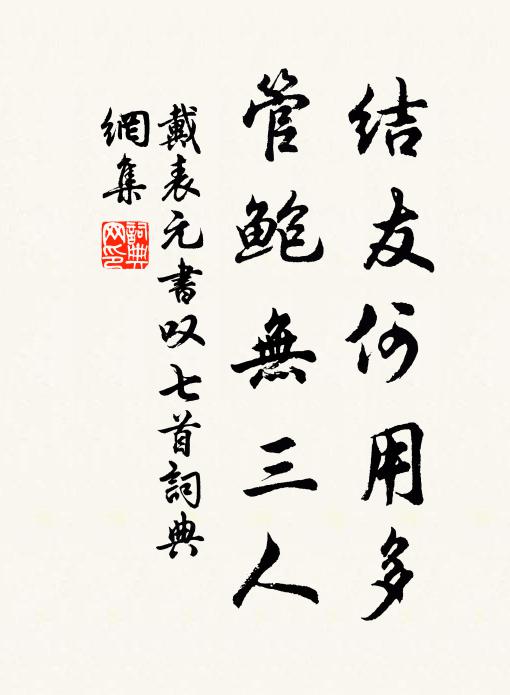 结友何用多
管鲍無三人
戴表元書叹七首詞典
網集
詞典网印